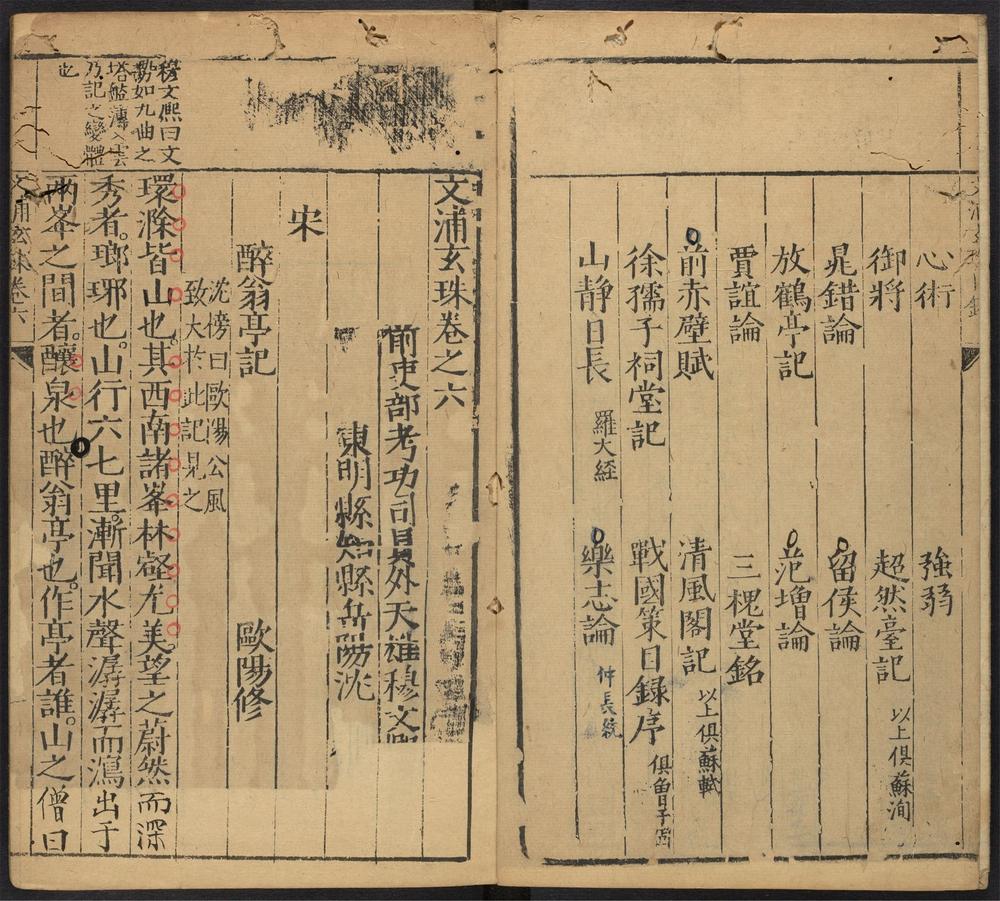 心術 強弱
御將 超然臺記 以上俱蘇洵
晁錯論 留侯論
放鶴亭記 范增論
賈誼論 三槐堂銘
前赤壁賦 清風閣記 以上俱蘇軾
徐孺子祠堂記 戰國策目錄序 俱曾子固
山靜日長 羅大經 樂志論 仲長統
文浦玄珠卷之六
前吏部考功司員外天雄穆文熙
東明縣知縣岳陽沈
宋
醉翁亭記 歐陽修
沈榜曰歐陽公風
致大於此記見之
環滁皆山也其西南諸峯林壑尤美望之蔚然而深
秀者瑯琊也山行六七里漸聞水聲潺潺而瀉出于
兩峯之間者釀泉也醉翁亭也作亭者誰山之僧曰
穆文熙曰文
勢如九曲之
塔艦薄入雲
乃記之變體
也
文浦玄珠卷六